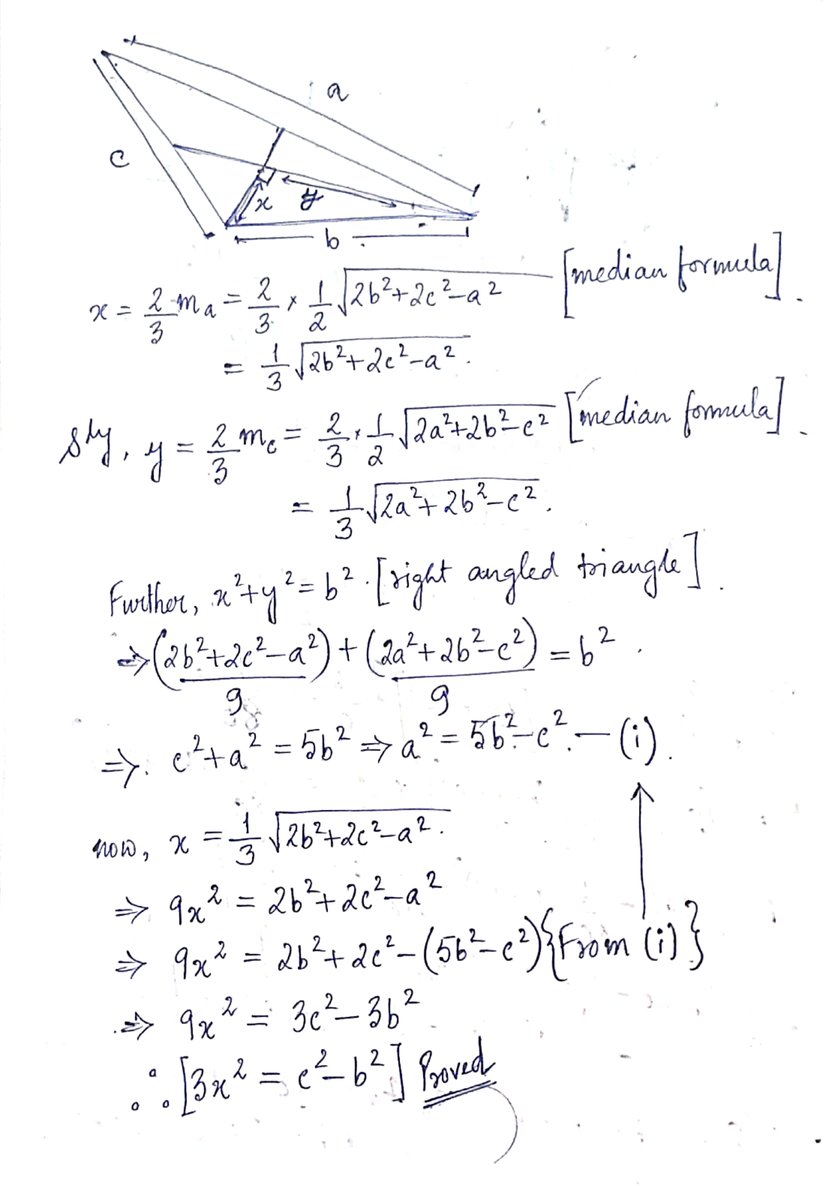 a
c
x
y
b
x = 2/3 mₐ = 2/3 × 1/2 √(2b²+2c²−a²) [median formula].
= 1/3 √(2b²+2c²−a²).
Slly, y = 2/3 m꜀ = 2/3 · 1/2 √(2a²+2b²−c²) [median formula].
= 1/3 √(2a²+2b²−c²).
Further, x²+y² = b². [right angled triangle].
⇒ (2b²+2c²−a²)/9 + (2a²+2b²−c²)/9 = b².
⇒. c²+a² = 5b² ⇒ a² = 5b²−c². — (i).
now, x = 1/3 √(2b²+2c²−a²).
⇒ 9x² = 2b²+2c²−a²
⇒ 9x² = 2b²+2c²−(5b²−c²) {From (i)}
⇒ 9x² = 3c²−3b²
∴ [3x² = c²−b²] Proved